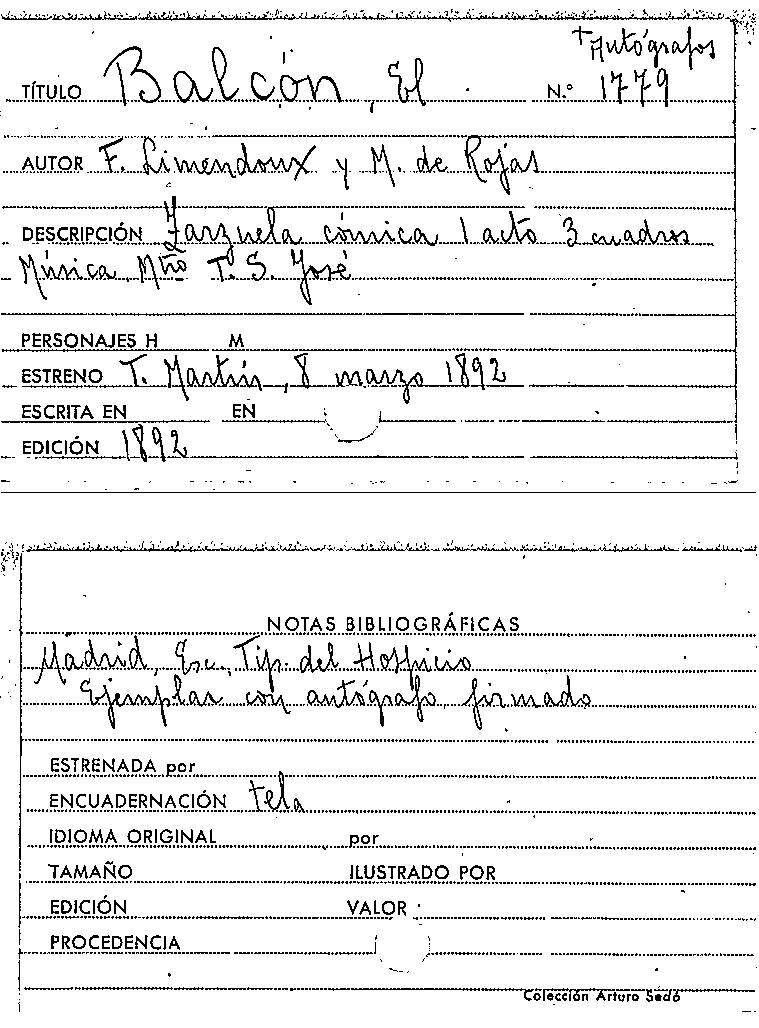 + Autógrafos
TÍTULO Balcón, El N.º 1779
AUTOR F. Limendoux y M. de Rojas
DESCRIPCIÓN Zarzuela cómica 1 acto 3 cuadros
Música Mño T. S. José
PERSONAJES H M
ESTRENO T. Martín, 8 marzo 1892
ESCRITA EN EN
EDICIÓN 1892
NOTAS BIBLIOGRÁFICAS
Madrid, Esc. Tip. del Hospicio
Ejemplar con autógrafo firmado
ESTRENADA por
ENCUADERNACIÓN tela
IDIOMA ORIGINAL por
TAMAÑO ILUSTRADO POR
EDICIÓN VALOR
PROCEDENCIA
Colección Arturo Sedó